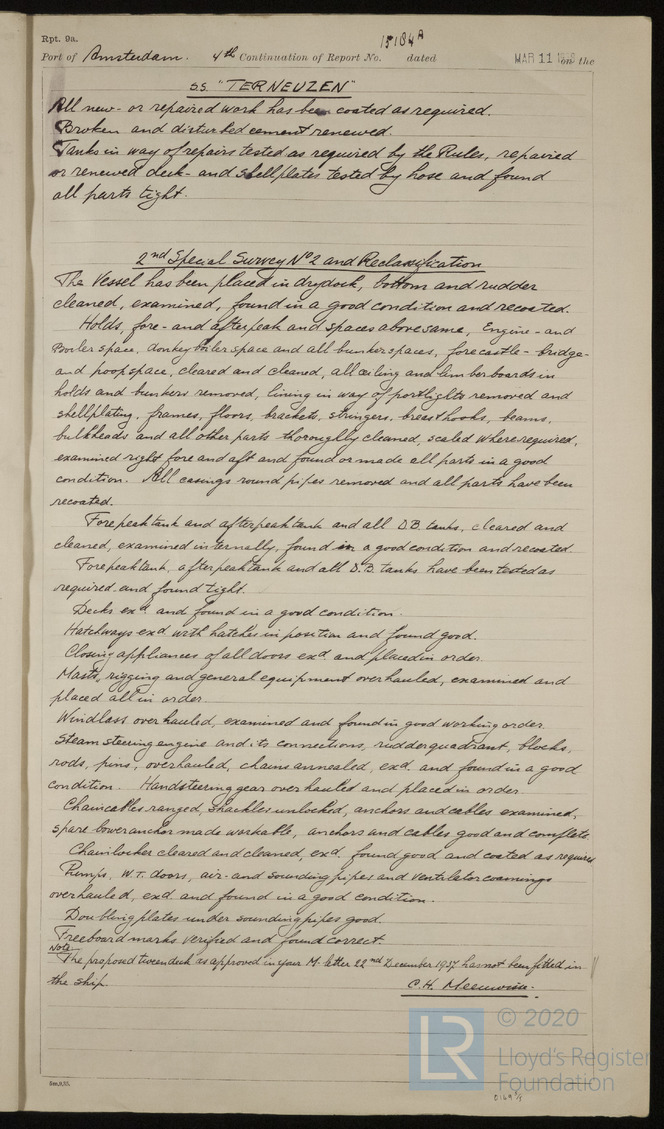 Rpt. 9a.
15184A
Port of Amsterdam. 4th Continuation of Report No. dated MAR 11 on the
S.S. "TERNEUZEN"
All new- or repaired work has been coated as required.
Broken and disturbed cement renewed.
Tanks in way of repairs tested as required by the Rules, repaired
or renewed deck- and shellplates tested by hose and found
all parts tight.
2nd Special Survey No 2 and Reclassification
The Vessel has been placed in drydock, bottom and rudder
cleaned, examined, found in a good condition and recoated.
Holds, fore- and afterpeak and spaces above same, Engine- and
Boiler space, donkey boiler space and all bunker spaces, forecastle- bridge-
and poop space, cleared and cleaned, all ceiling and limberboards in
holds and bunkers removed, lining in way of portlights removed and
shellplating, frames, floors, brackets, stringers, breasthooks, beams,
bulkheads and all other parts thoroughly cleaned, scaled where required,
examined right fore and aft and found or made all parts in a good
condition. All casings round pipes removed and all parts have been
recoated.
Forepeaktank and afterpeaktank and all D.B. tanks, cleared and
cleaned, examined internally, found in a good condition and recoated.
Forepeaktank, afterpeaktank and all D.B. tanks have been tested as
required and found tight.
Decks exd. and found in a good condition.
Hatchways exd with hatches in position and found good.
Closing appliances of all doors exd. and placed in order.
Masts, rigging and general equipment overhauled, examined and
placed all in order.
Windlass overhauled, examined and found in good working order.
Steam steering engine and its connections, rudderquadrant, blocks,
rods, pins, overhauled, chains annealed, exd. and found in a good
condition. Handsteering gear overhauled and placed in order.
Chaincables ranged, shackles unlocked, anchors and cables examined,
spare bower anchor made workable, anchors and cables good and complete.
Chainlocker cleared and cleaned, exd. found good and coated as required
Pumps, W.T. doors, air- and sounding pipes and ventilator coamings
overhauled, exd. and found in a good condition.
Doubling plates under sounding pipes good.
Freeboard marks verified and found correct.
Note.
The proposed tweendeck as approved in your M. letter 22nd December 1937 has not been fitted in
the ship.
C.H. Meeuwisse.
LR
© 2020
Lloyd's Register
Foundation